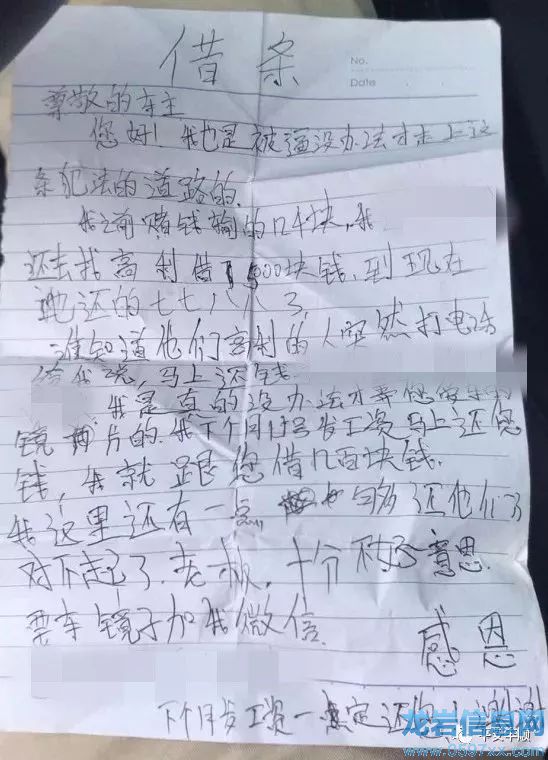 借条
No.
Date
尊敬的车主
您好!我也是被逼没办法才走上这
条犯法的道路的.
我之前赌钱输的几千块,我
还去找高利借1500块钱,到现在
也还的七七八八了,
谁知道他们高利的人突然打电话
给我说,马上还钱.
我是真的没办法才弄您的车
镜片的.我下个月15号发工资马上还您
钱,我就跟您借几百块钱.
我这里还有一点 够还他们了
对不起了.老板.十分不好意思.
要车镜子加我微信.
感恩
下个月发工资一定还您!谢谢
平安华顶
龙岩信息网
www.0597xx.com